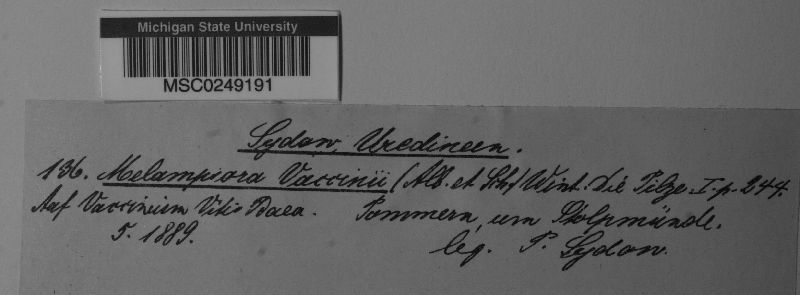 Michigan State University
MSC0249191
Sydow, Uredineen.
136. Melampsora Vaccinii (Alb. et Sch.) Wint. Die Pilze I. p. 244.
Auf Vaccinium Vitis Idaea. Pommern, um Stolpmünde.
5. 1889. leg. P. Sydow.